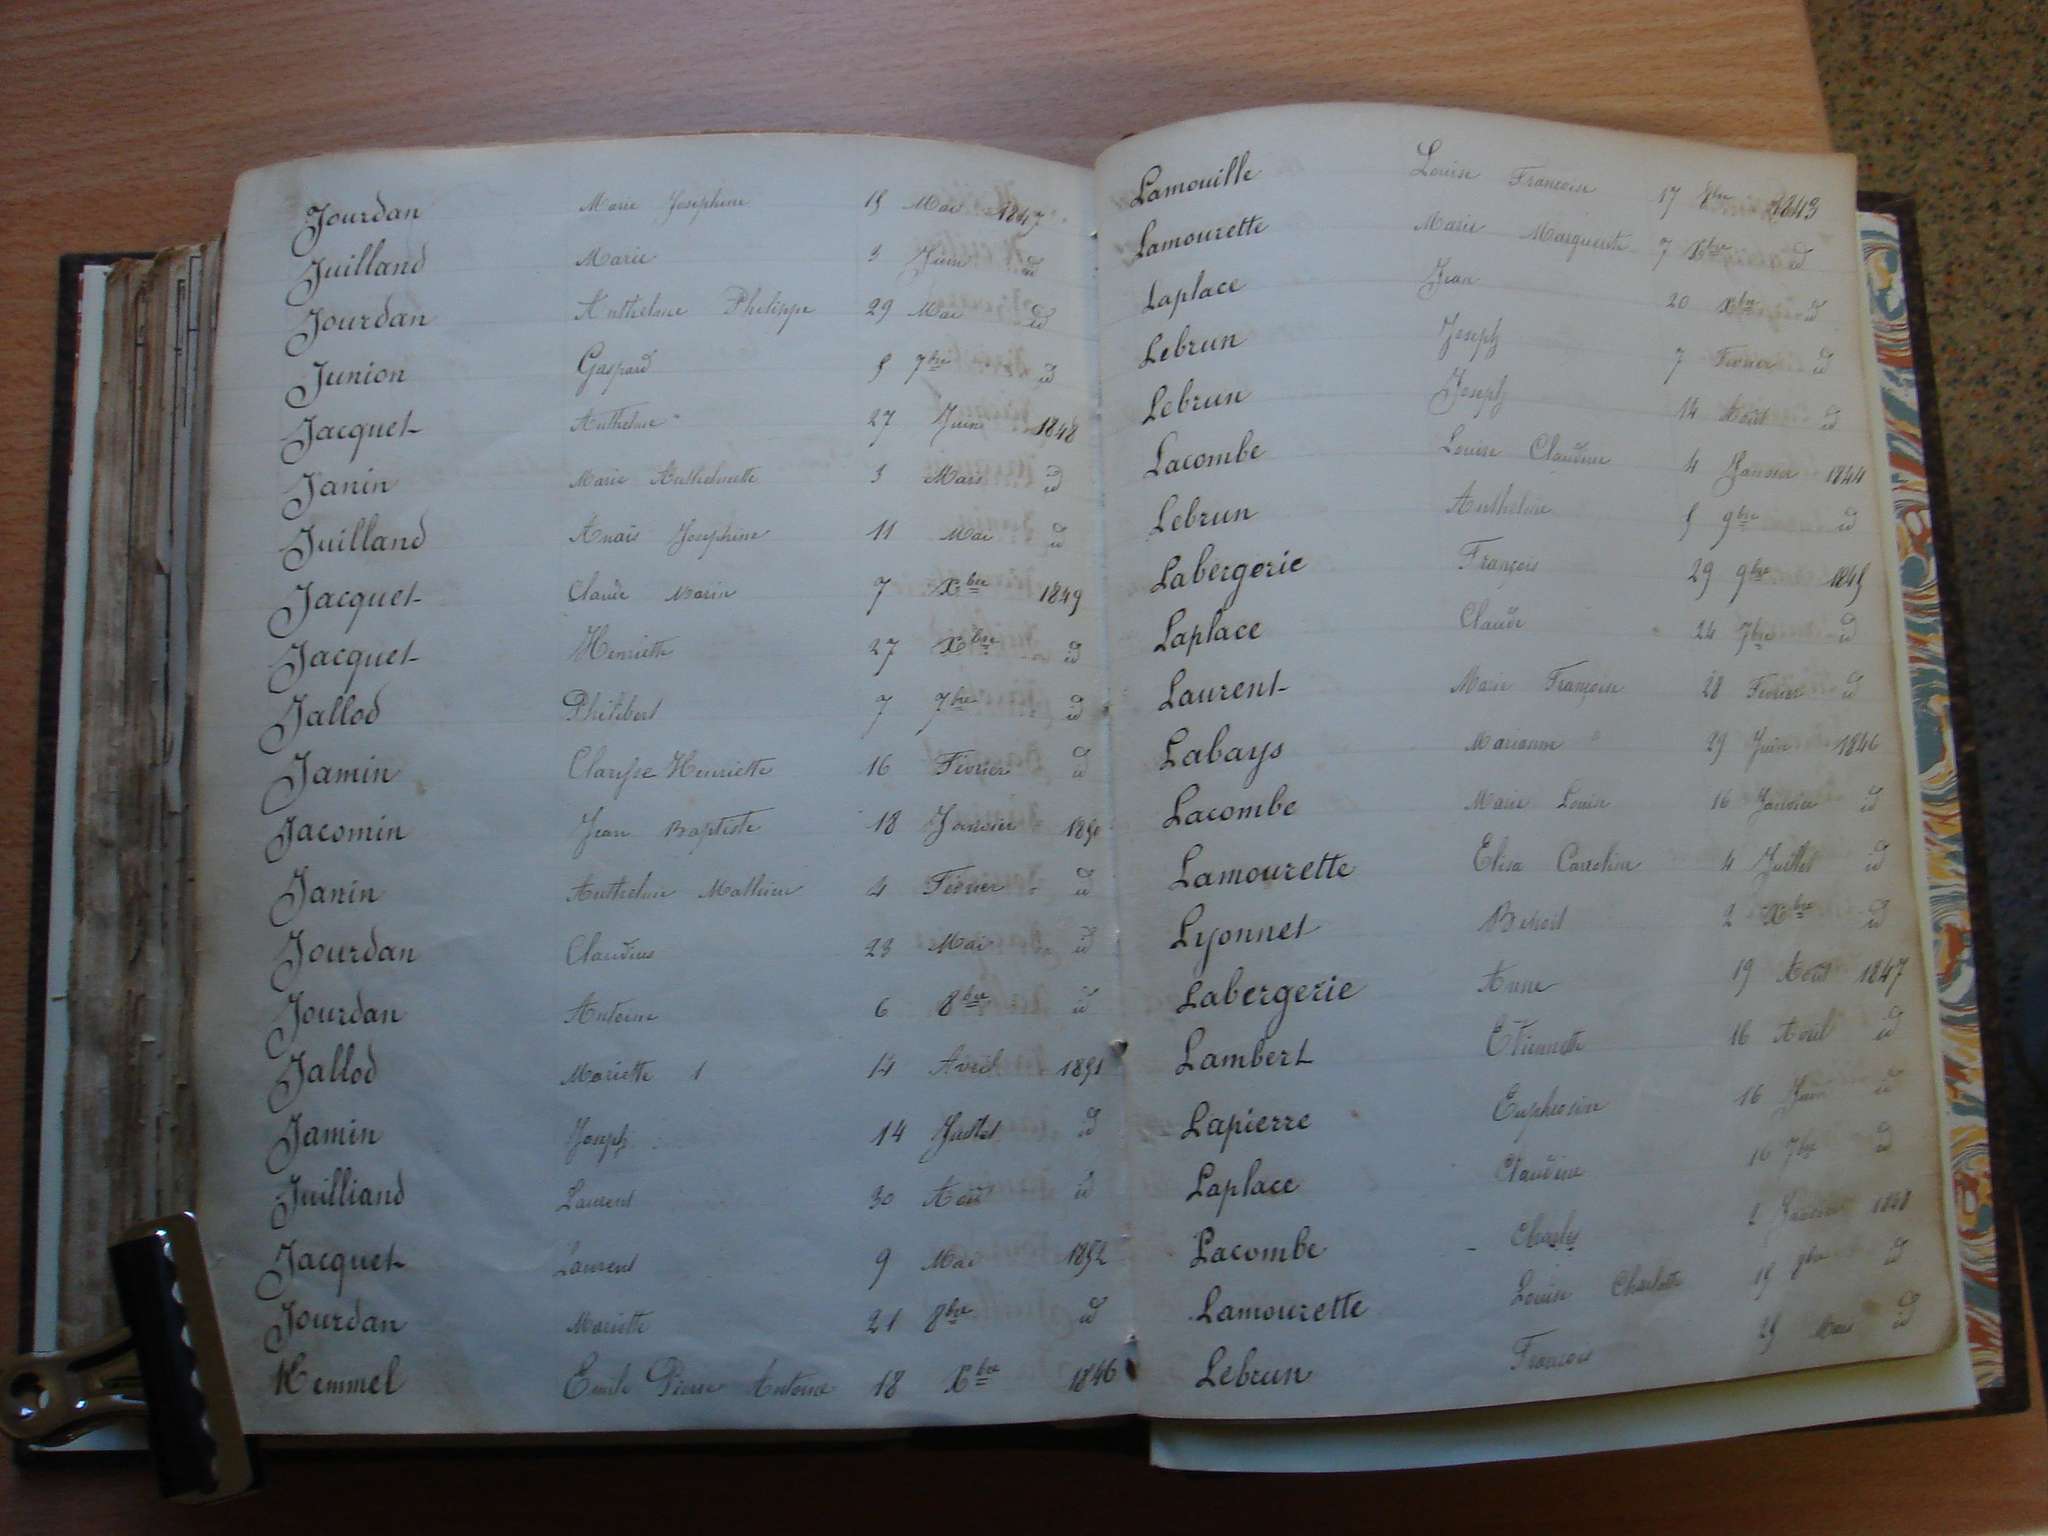 Jourdan Marie Josephine 15 Mai 1847
Juilland Marie 3 Juin id
Jourdan Anthelme Philippe 29 Mai id
Junion Gaspard 5 7bre id
Jacquet Anthelme 27 Juin 1848
Janin Marie Anthelmette 3 Mars id
Juilland Anais Josephine 11 Mai id
Jacquet Claude Marie 7 Xbre 1849
Jacquet Henriette 27 Xbre id
Jallod Philibert 7 7bre id
Jamin Clarisse Henriette 16 Février id
Jacomin Jean Baptiste 18 Janvier 1850
Janin Anthelme Mathieu 4 Février id
Jourdan Claudius 23 Mai id
Jourdan Antoine 6 8bre id
Jallod Mariette 1 14 Avril 1851
Jamin Joseph 14 Juillet id
Juilliand Laurent 30 Août id
Jacquet Laurent 9 Mai 1852
Jourdan Mariette 21 8bre id
Kemmel Emile Pierre Antoine 18 Xbre 1846
Lamouille Louise Françoise 17 8bre 1843
Lamourette Marie Marguerite 7 Xbre id
Laplace Jean 20 Xbre id
Lebrun Joseph 7 Février id
Lebrun Joseph 14 Août id
Lacombe Louise Claudine 4 Janvier 1844
Lebrun Anthelme 5 9bre id
Labergerie François 29 9bre 1845
Laplace Claude 24 7bre id
Laurent Marie Françoise 28 Février id
Labays Marianne 29 Juin 1846
Lacombe Marie Louise 16 Janvier id
Lamourette Elisa Caroline 4 Juillet id
Lyonnet Benoit 2 Xbre id
Labergerie Anne 19 Août 1847
Lambert Etiennette 16 Avril id
Lapierre Euphrosine 16 Juin id
Laplace Claudine 16 7bre id
Lacombe Charles 2 Janvier 1848
Lamourette Louise Charlotte 15 id
Lebrun François 25 Mars id